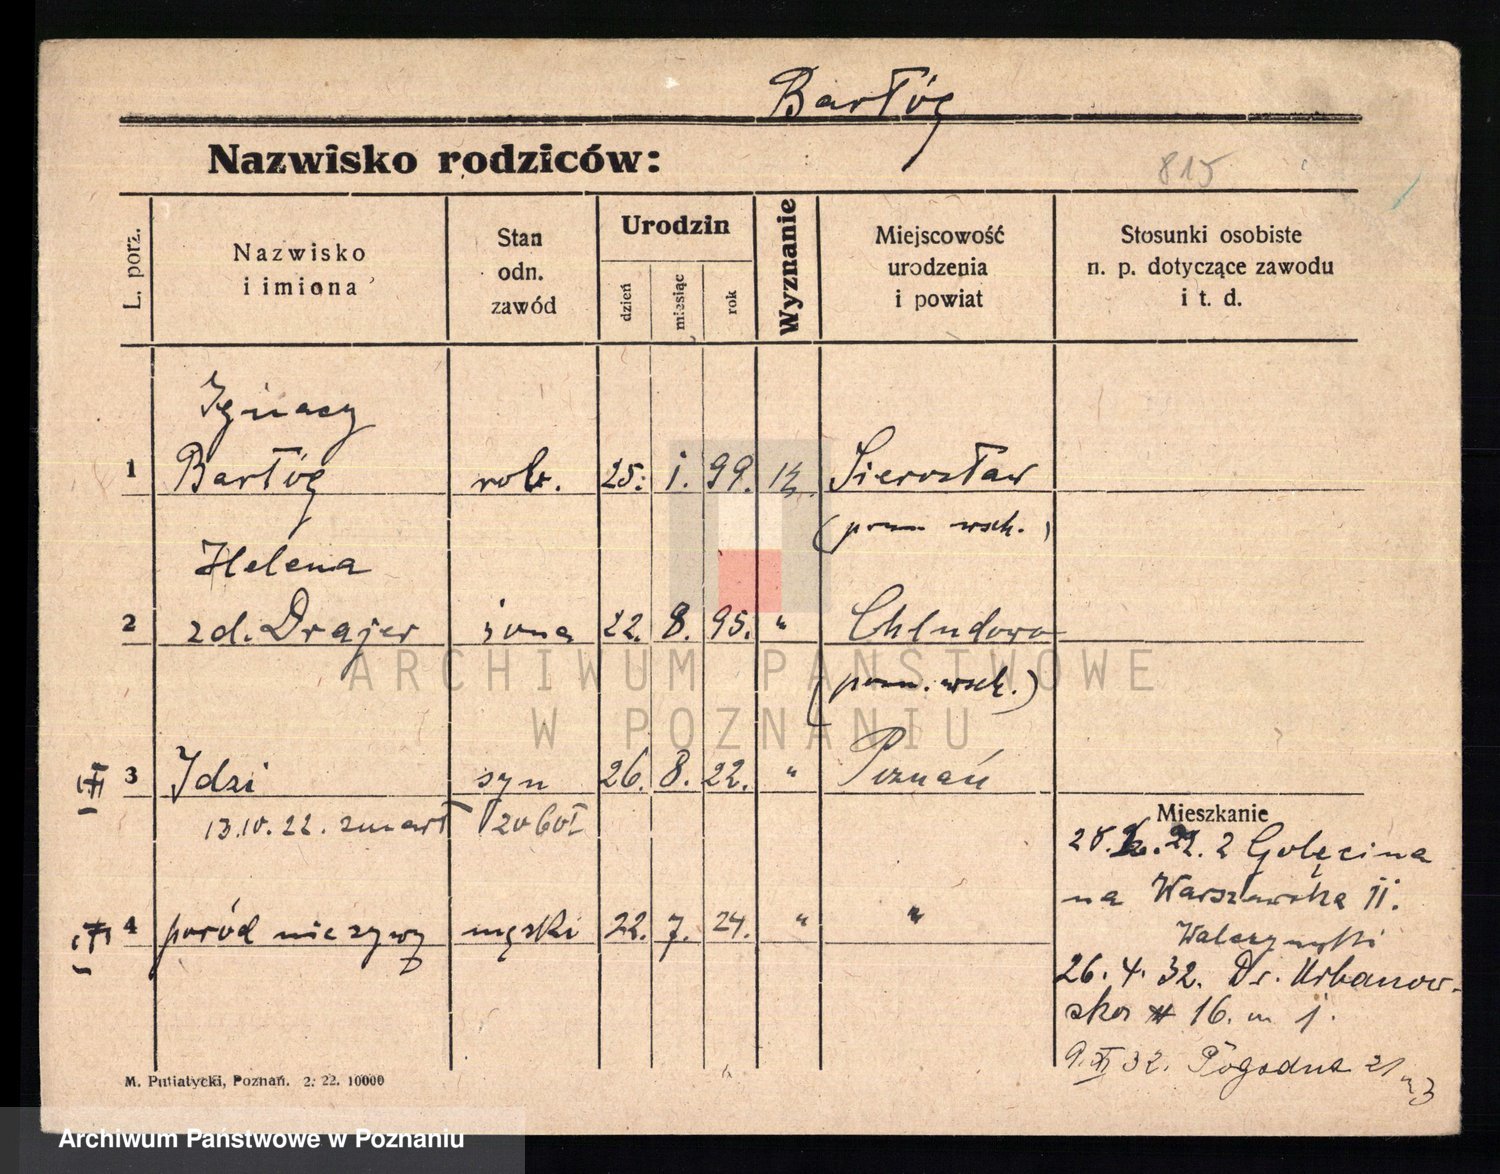 Bartłóg
Nazwisko rodziców:
815
L. porz.
Nazwisko
i imiona
Stan
odn.
zawód
Urodzin
dzień
miesiąc
rok
Wyznanie
Miejscowość
urodzenia
i powiat
Stosunki osobiste
n. p. dotyczące zawodu
i t. d.
Ignacy
1 Bartłóg rob. 25. 1. 99. Sierosław
(pozn. wsch.)
Helena
2 zd. Drajer żona 22. 8. 95. " Chludowo
(pozn. wsch.)
3 Idzi syn 26. 8. 22. " Poznań
13.10.22. zmarł
Mieszkanie
22. 2 Golęcina
na Warszawska II.
4 poród nieżywy męski 22. 7. 24. " "
26. 4. 32. Dr. Urbanow-
ska 16. m 1.
9. XI 32. Pogodna 21
M. Putiatycki, Poznań. 2. 22. 10000
ARCHIWUM PAŃSTWOWE
W POZNANIU
Archiwum Państwowe w Poznaniu